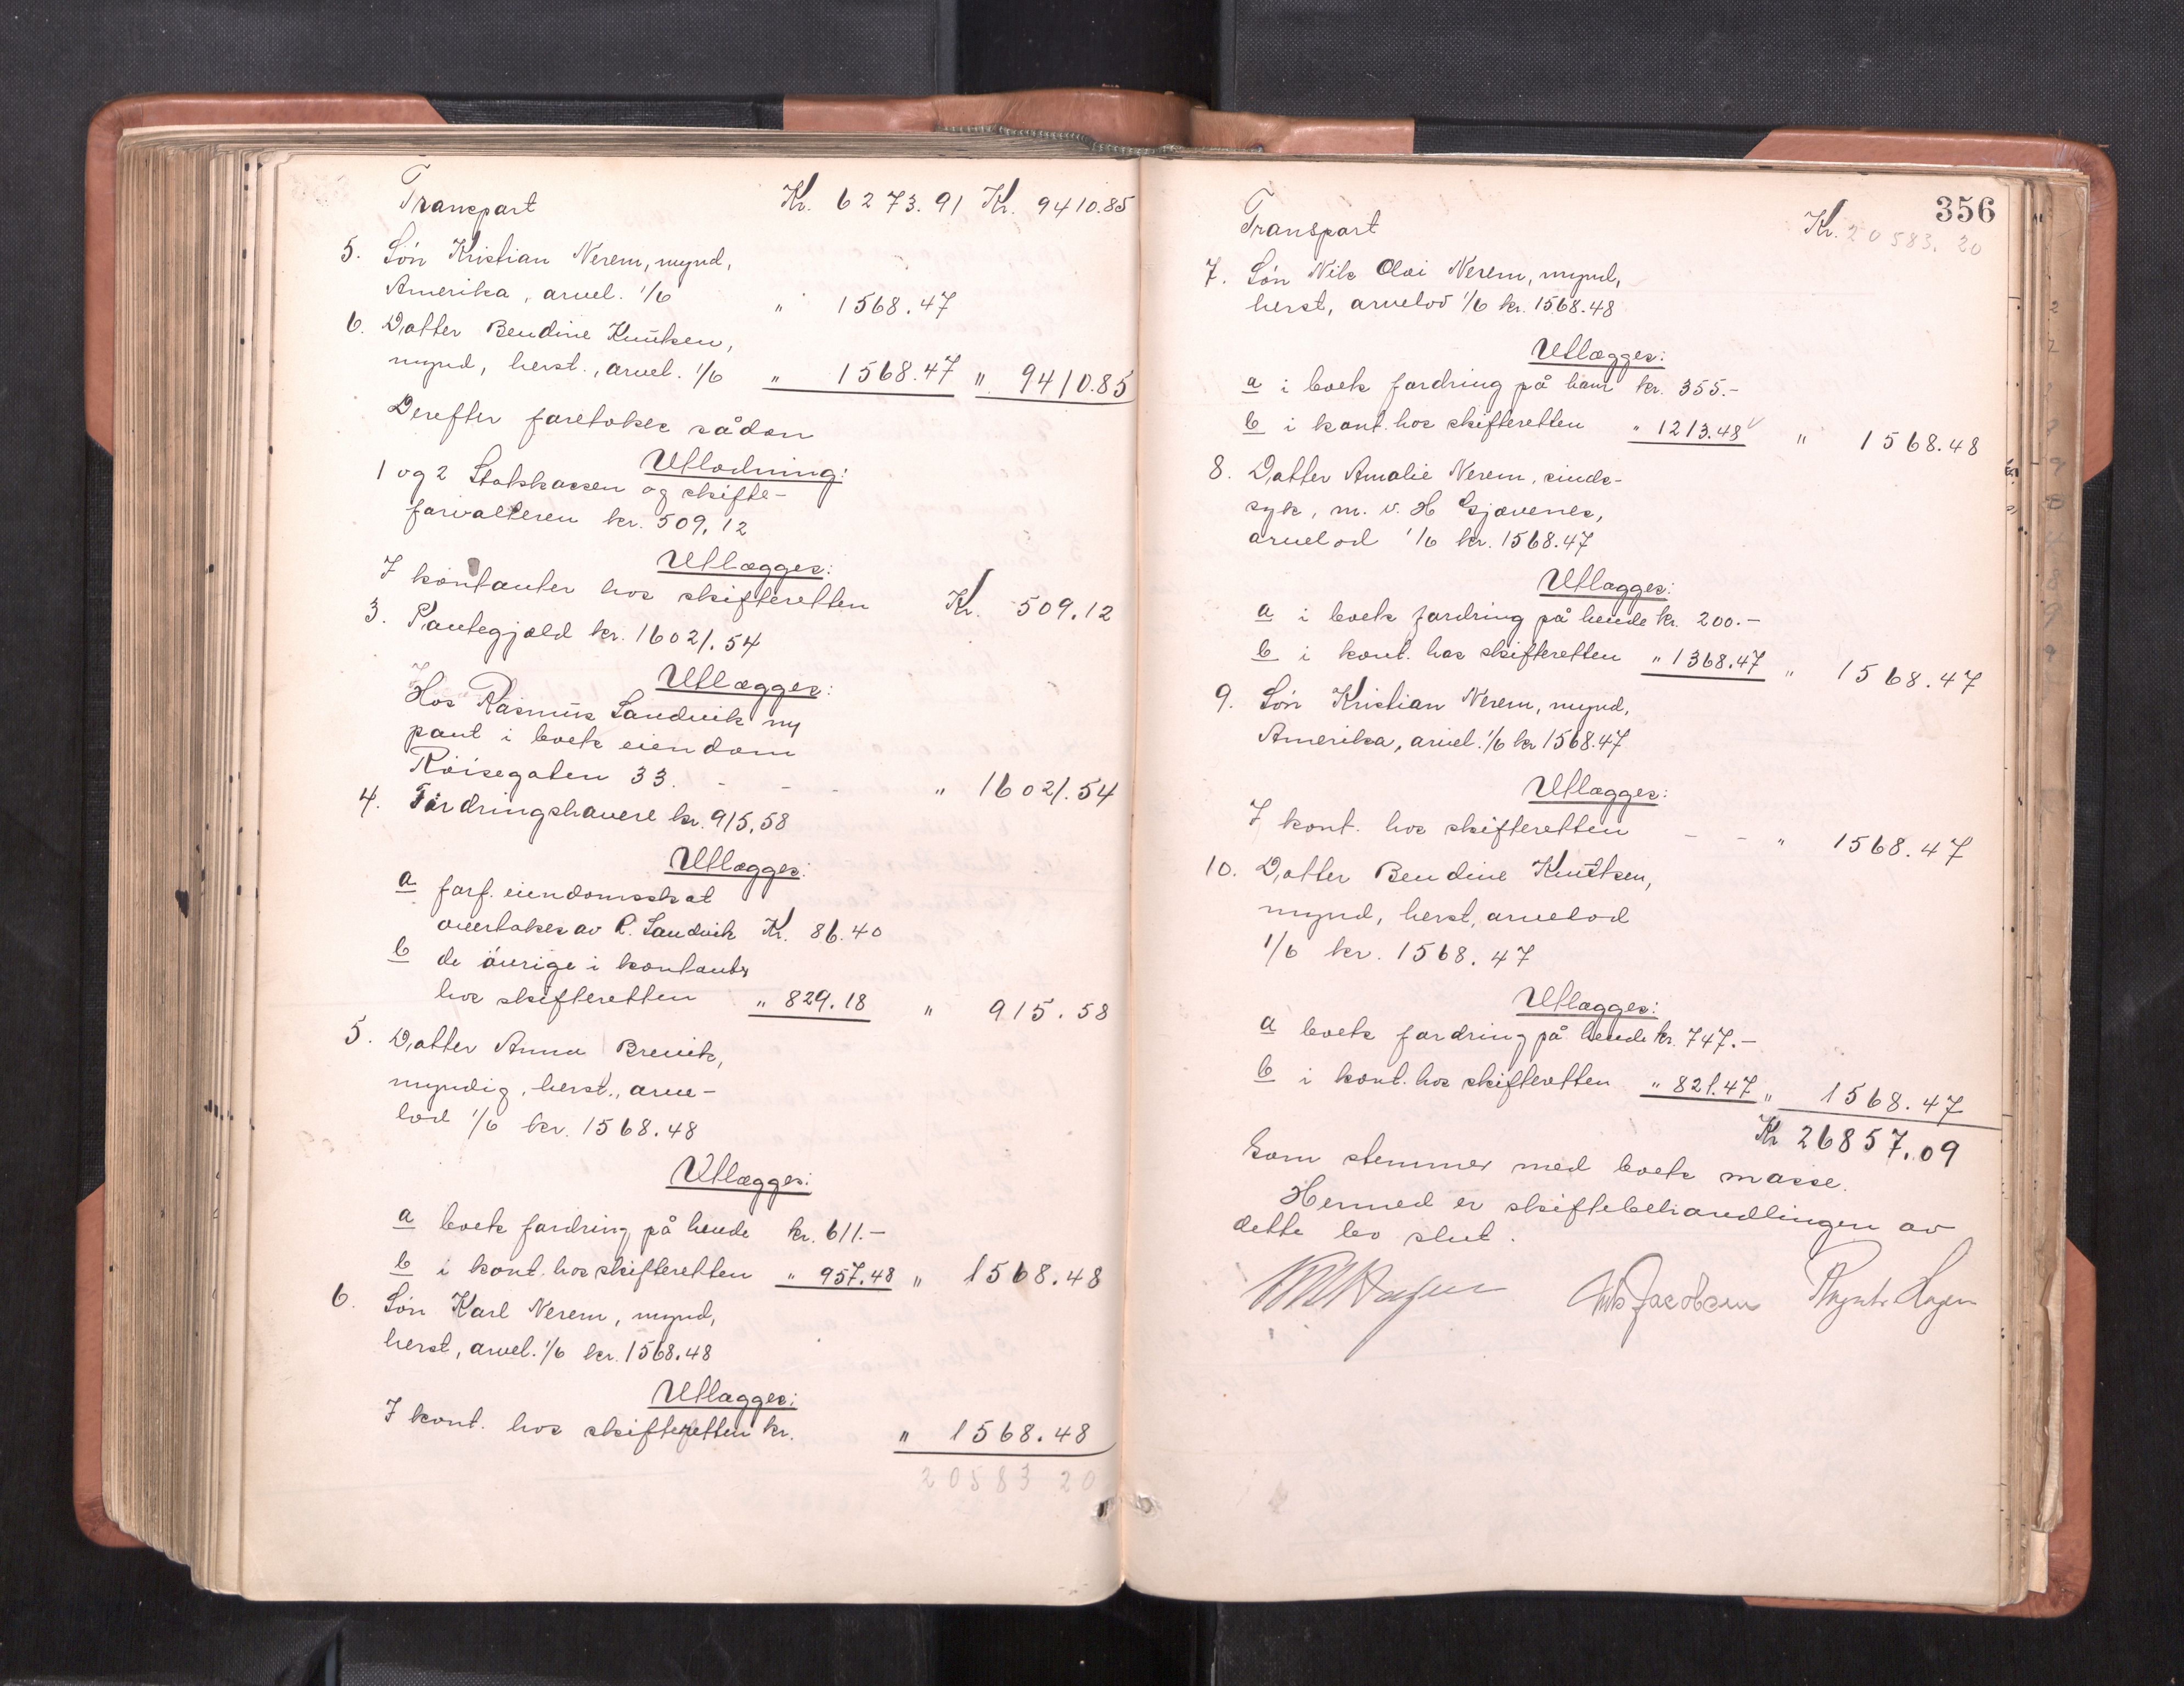 Transport Kr. 6273.91 Kr. 9410.85
5. Søn Kristian Nerem, mynd,
Amerika, arvel. 1/6 " 1568.47
6. Datter Bendine Knutsen,
mynd, herst., arvel. 1/6 " 1568.47 " 9410.85
Derefter foretokes sådan
Utlodning:
1 og 2 Statskassen og skifte-
forvalteren kr. 509,12
Utlægges:
I kontanter hos skifteretten Kr. 509.12
3. Pantegjæld kr. 16021.54
Utlægges:
Hos Rasmus Sandvik ny
pant i boets eiendom
Röisegaten 33. - - - " 16021.54
4. Fordringshavere kr. 915,58
Utlægges:
a forf. eiendomsskat
overtokes av R. Sandvik Kr. 86.40
b de øvrige i kontanter
hos skifteretten " 829.18 " 915.58
5. Datter Anna Brevik,
myndig, herst., arve-
lod 1/6 kr. 1568.48
Utlægges:
a boets fordring på hende kr. 611.-
b i kont. hos skifteretten " 957.48 " 1568.48
6. Søn Karl Nerem, mynd,
herst, arvel. 1/6 kr. 1568.48
Utlægges:
I kont. hos skifteretten kr. " 1568.48
20583 20
356
Transport Kr. 20583.20
7. Søn Nils Olai Nerem, mynd,
herst, arvelod 1/6 kr. 1568.48
Utlægges:
a i boets fordring på ham kr. 355.-
b i kont. hos skifteretten " 1213.48 " 1568.48
8. Datter Amalie Nerem, sinds-
syk, m. v. H Gjævenes,
arvelod 1/6 kr. 1568.47
Utlægges:
a i boets fordring på hende kr. 200.-
b i kont. hos skifteretten " 1368.47 " 1568.47
9. Søn Kristian Nerem, mynd,
Amerika, arvel. 1/6 kr 1568.47
Utlægges:
I kont. hos skifteretten - - " 1568.47
10. Datter Bendine Knutsen,
mynd, herst, arvelod
1/6 kr. 1568.47
Utlægges:
a boets fordring på hende kr. 747.-
b i kont. hos skifteretten " 821.47 " 1568.47
Kr 26857.09
Som stemmer med boets masse.
Hermed er skiftebehandlingen av
dette bo slut.
Jacobsen Hagen